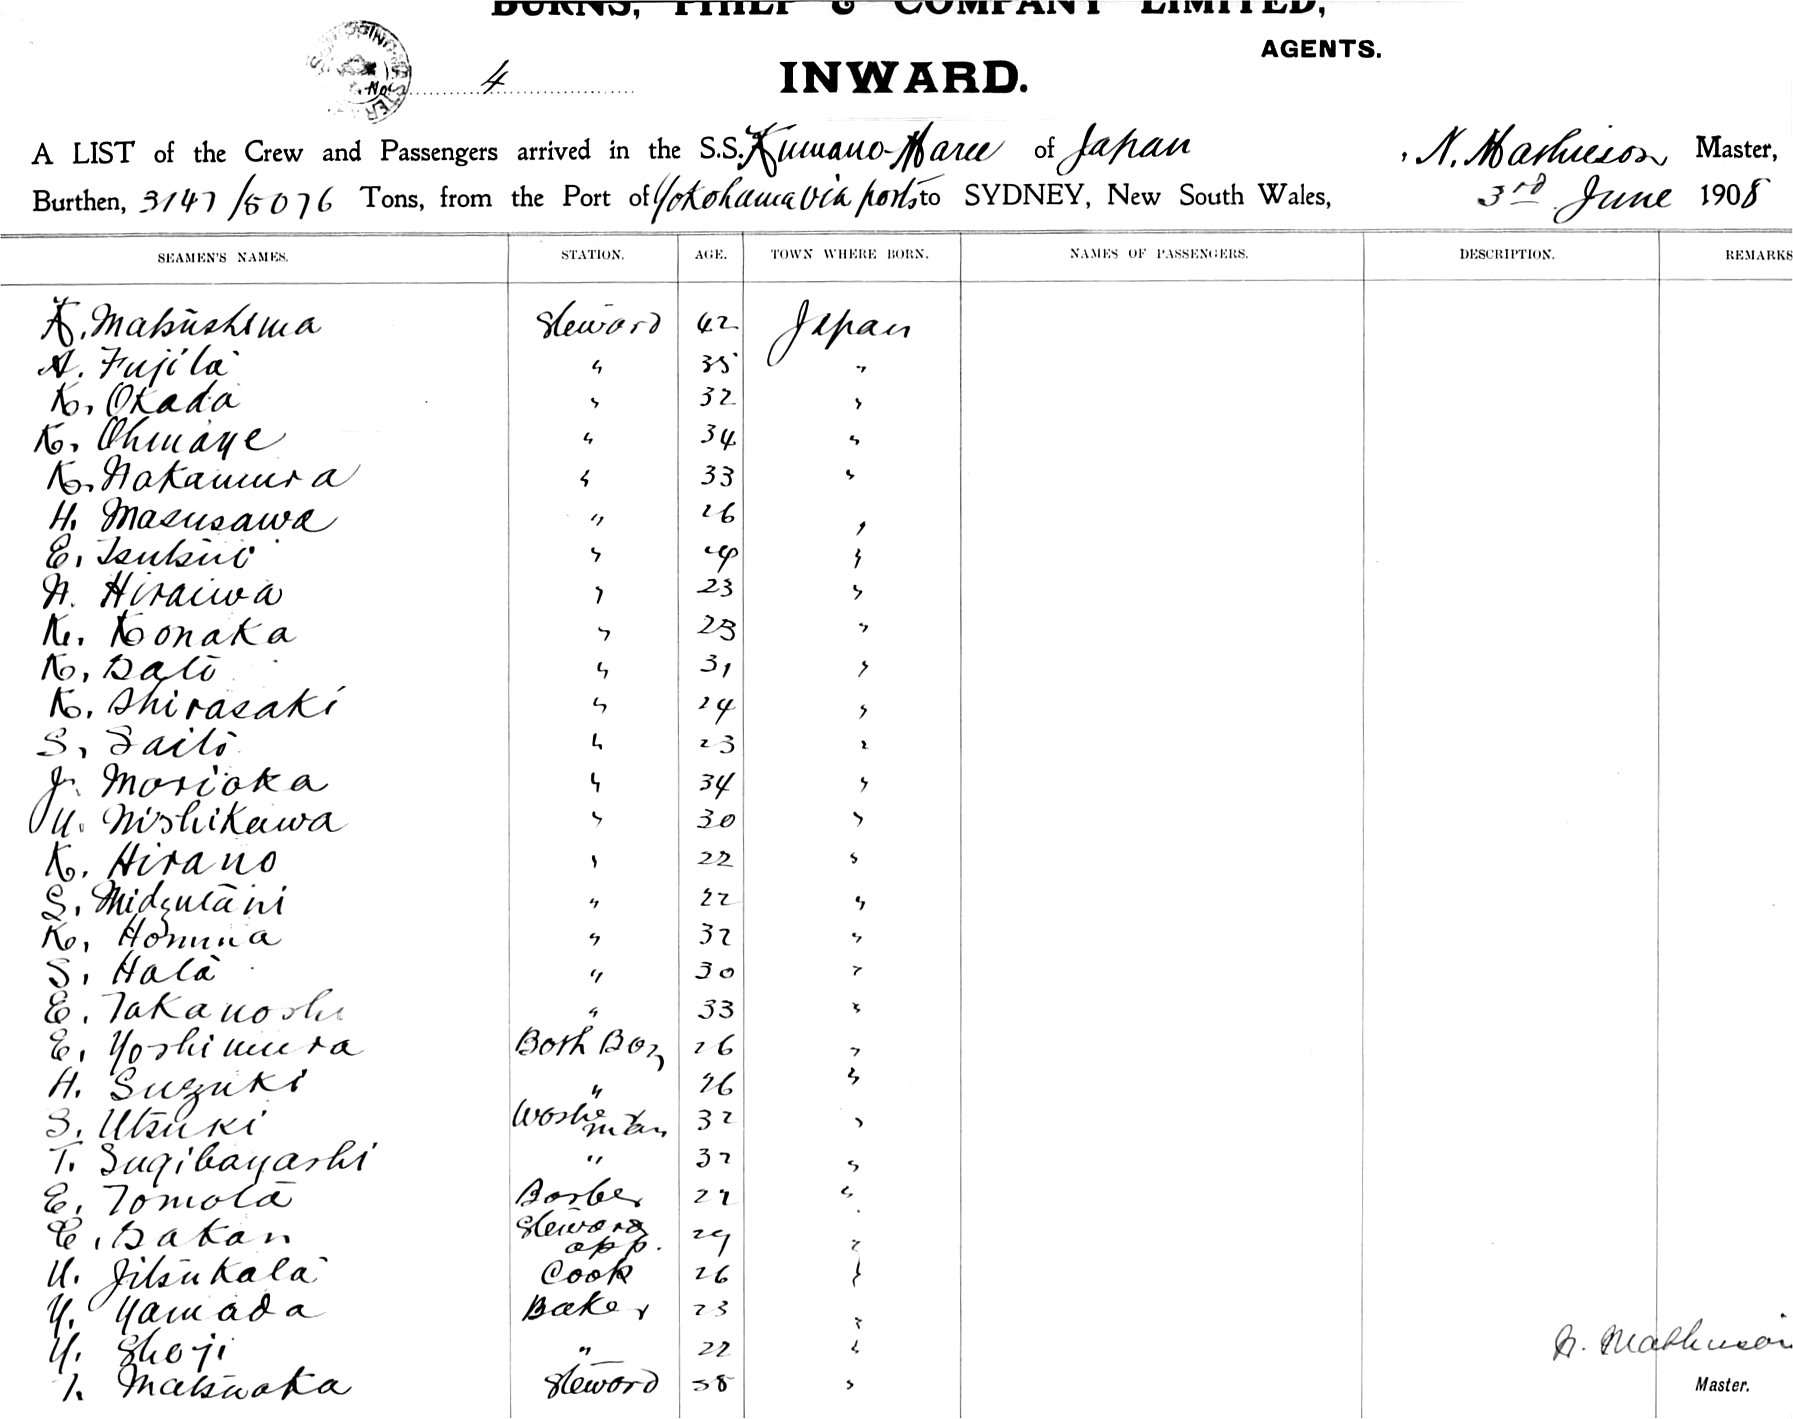 BURNS, PHILP & COMPANY LIMITED,
AGENTS.
4
INWARD.
A LIST of the Crew and Passengers arrived in the S.S. Kumano-Maru of Japan , N. Mathieson Master,
Burthen, 3147/5076 Tons, from the Port of Yokohama via ports to SYDNEY, New South Wales, 3rd June 1908
SEAMEN'S NAMES. STATION. AGE. TOWN WHERE BORN. NAMES OF PASSENGERS. DESCRIPTION. REMARKS
K. Matsushima Steward 42 Japan
A. Fujita " 35 "
K. Okada " 32 "
K. Ohmaye " 34 "
K. Nakamura " 33 "
H. Masusawa " 26 "
E. Tsutsui " "
N. Hiraiwa " 23 "
K. Konaka " 23 "
K. Sato " 31 "
K. Shirasaki " 24 "
S. Saito " 23 "
J. Morioka " 34 "
U. Nishikawa " 30 "
K. Hirano " 22 "
S. Midzutani " 22 "
K. Homma " 32 "
S. Hata " 30 "
E. Takanoshi " 33 "
E. Yoshimura Bath Boy 26 "
H. Suzuki " 26 "
S. Utsuki Washe man 32 "
T. Sugibayashi " 32 "
E. Tomota Barber 27 "
E. Sakan Steward app. 29 "
U. Jitsukata Cook 26 "
Y. Yamada Baker 23 "
Y. Shoji " 22 "
T. Matsuoka Steward 38 "
N. Mathieson
Master.